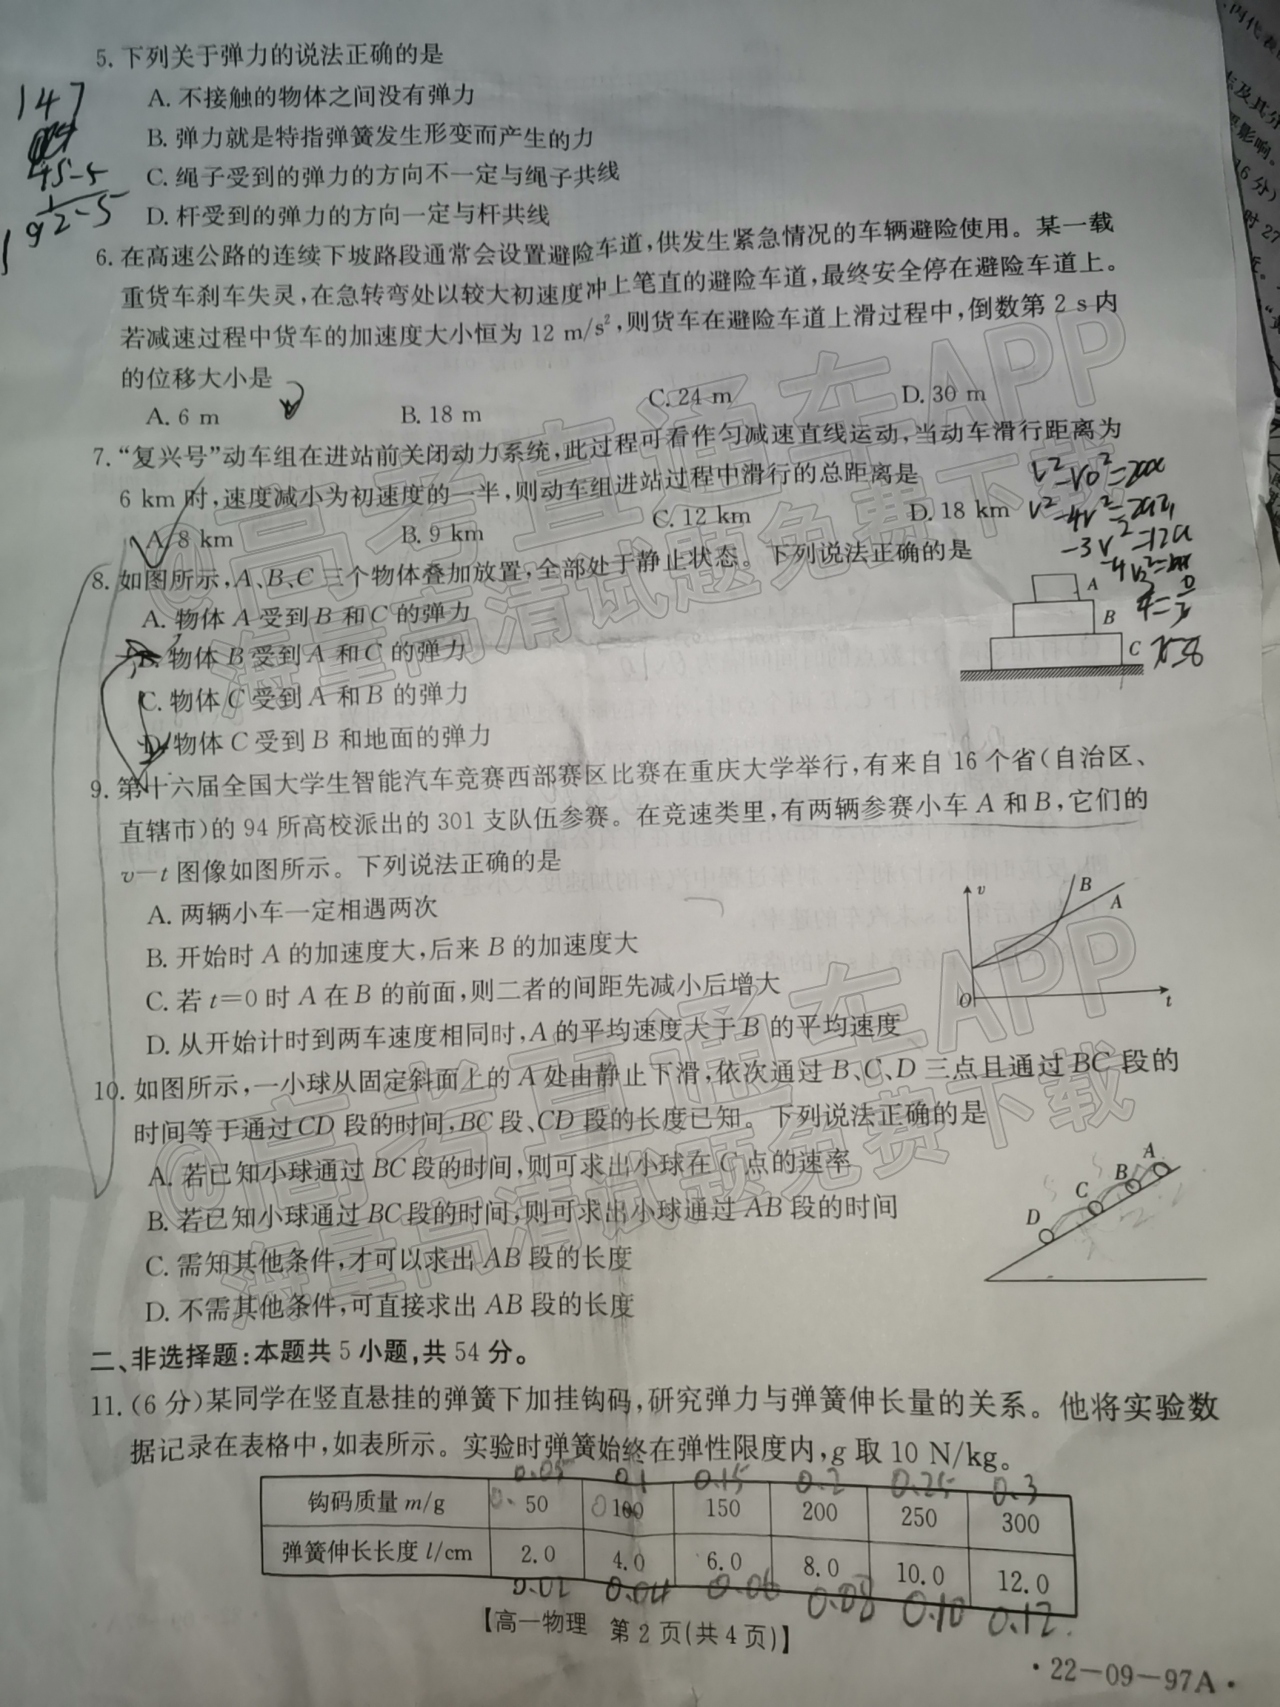 5. 下列关于弹力的说法正确的是
A. 不接触的物体之间没有弹力
B. 弹力就是特指弹簧发生形变而产生的力
C. 绳子受到的弹力的方向不一定与绳子共线
D. 杆受到的弹力的方向一定与杆共线
147
45-5
92-5
6. 在高速公路的连续下坡路段通常会设置避险车道,供发生紧急情况的车辆避险使用。某一载
重货车刹车失灵,在急转弯处以较大初速度冲上笔直的避险车道,最终安全停在避险车道上。
若减速过程中货车的加速度大小恒为 12 m/s²,则货车在避险车道上滑过程中,倒数第 2 s 内
的位移大小是
A. 6 m B. 18 m C. 24 m D. 30 m
7. “复兴号”动车组在进站前关闭动力系统,此过程可看作匀减速直线运动,当动车滑行距离为
6 km 时,速度减小为初速度的一半,则动车组进站过程中滑行的总距离是
A. 8 km B. 9 km C. 12 km D. 18 km
8. 如图所示,A、B、C 三个物体叠加放置,全部处于静止状态。下列说法正确的是
A. 物体 A 受到 B 和 C 的弹力
B. 物体 B 受到 A 和 C 的弹力
C. 物体 C 受到 A 和 B 的弹力
D. 物体 C 受到 B 和地面的弹力
A
B
C
9. 第十六届全国大学生智能汽车竞赛西部赛区比赛在重庆大学举行,有来自 16 个省(自治区、
直辖市)的 94 所高校派出的 301 支队伍参赛。在竞速类里,有两辆参赛小车 A 和 B,它们的
v—t 图像如图所示。下列说法正确的是
A. 两辆小车一定相遇两次
B. 开始时 A 的加速度大,后来 B 的加速度大
C. 若 t=0 时 A 在 B 的前面,则二者的间距先减小后增大
D. 从开始计时到两车速度相同时,A 的平均速度大于 B 的平均速度
v
B
A
O
t
10. 如图所示,一小球从固定斜面上的 A 处由静止下滑,依次通过 B、C、D 三点且通过 BC 段的
时间等于通过 CD 段的时间,BC 段、CD 段的长度已知。下列说法正确的是
A. 若已知小球通过 BC 段的时间,则可求出小球在 C 点的速率
B. 若已知小球通过 BC 段的时间,则可求出小球通过 AB 段的时间
C. 需知其他条件,才可以求出 AB 段的长度
D. 不需其他条件,可直接求出 AB 段的长度
A
B
C
D
二、非选择题:本题共 5 小题,共 54 分。
11. (6 分)某同学在竖直悬挂的弹簧下加挂钩码,研究弹力与弹簧伸长量的关系。他将实验数
据记录在表格中,如表所示。实验时弹簧始终在弹性限度内,g 取 10 N/kg。
0.05 0.1 0.15 0.2 0.25 0.3
钩码质量 m/g 50 100 150 200 250 300
弹簧伸长长度 l/cm 2.0 4.0 6.0 8.0 10.0 12.0
0.02 0.04 0.06 0.08 0.10 0.12
【高一物理 第 2 页(共 4 页)】
·22-09-97A·
@高考直通车APP
海量高清试题免费下载
@高考直通车APP
海量高清试题免费下载